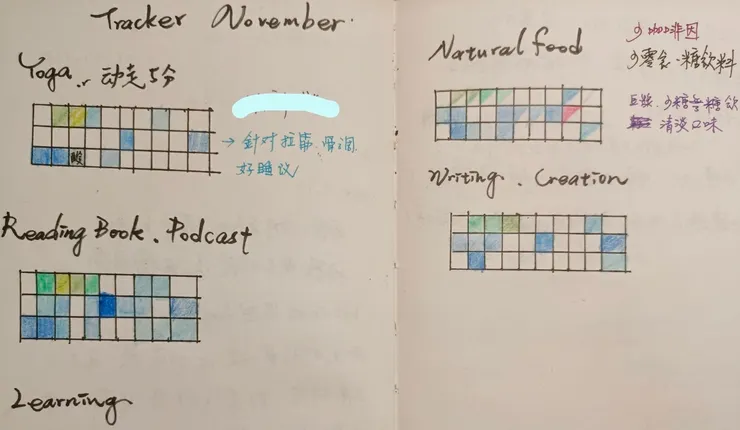 Tracker November.
Yoga. 动走5分
酸
→ 针对拉筋
好睡
Reading Book. Podcast
Learning
Natural food
少咖啡因
少零食·糖饮料
少糖无糖饮
清淡口味
Writing. Creation